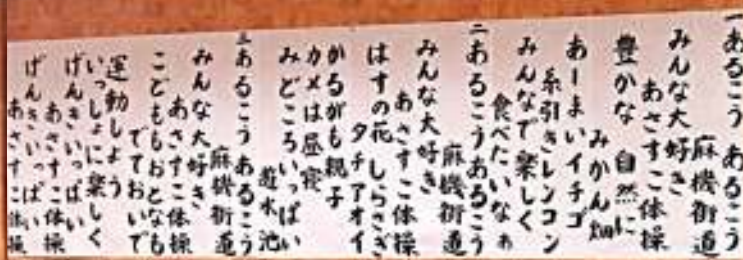 一あるこう あるこう
麻機街道
みんな大好き
あさすこ体操
豊かな 自然に
みかん畑
あーまいイチゴ
糸引きレンコン
みんなで楽しく
食べたいなぁ
二あるこうあるこう
麻機街道
みんな大好き
あさすこ体操
はすの花 しらさぎ
タチアオイ
かるがも親子
カメは昼寝
みどころいっぱい
遊水池
三あるこうあるこう
麻機街道
みんな大好き
あさすこ体操
こどももおとなも
でておいで
運動しよう
いっしょに楽しく
げんきいっぱい
あさすこ体操
げんきいっぱい
あさすこ体操